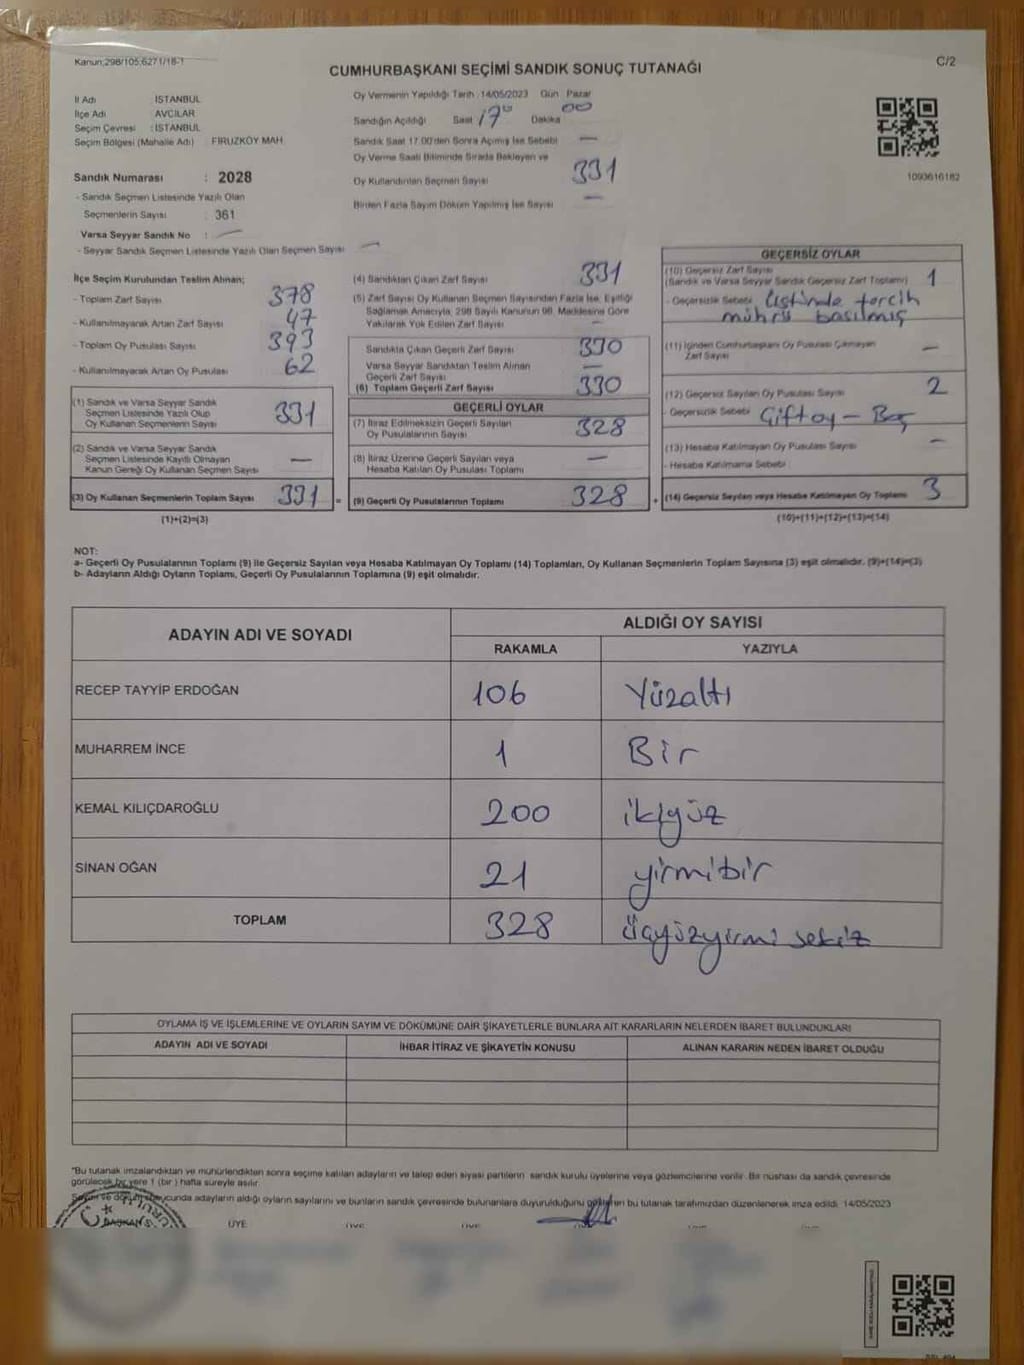 Kanun;298/105;6271/18-1
C/2
CUMHURBAŞKANI SEÇİMİ SANDIK SONUÇ TUTANAĞI
İl Adı İSTANBUL
İlçe Adı AVCILAR
Seçim Çevresi : İSTANBUL
Seçim Bölgesi (Mahalle Adı) : FİRUZKÖY MAH.
Oy Vermenin Yapıldığı Tarih : 14/05/2023 Gün Pazar
Sandığın Açıldığı Saat 17 Dakika 00
Sandık Saat 17.00'den Sonra Açılmış İse Sebebi —
Oy Verme Saati Bitiminde Sırada Bekleyen ve
Oy Kullandırılan Seçmen Sayısı 331
Birden Fazla Sayım Döküm Yapılmış İse Sayısı —
1093616182
Sandık Numarası : 2028
- Sandık Seçmen Listesinde Yazılı Olan
Seçmenlerin Sayısı : 361
Varsa Seyyar Sandık No : —
- Seyyar Sandık Seçmen Listesinde Yazılı Olan Seçmen Sayısı —
İlçe Seçim Kurulundan Teslim Alınan;
- Toplam Zarf Sayısı 378
- Kullanılmayarak Artan Zarf Sayısı 47
- Toplam Oy Pusulası Sayısı 393
- Kullanılmayarak Artan Oy Pusulası 62
(1) Sandık ve Varsa Seyyar Sandık
Seçmen Listesinde Yazılı Olup
Oy Kullanan Seçmenlerin Sayısı 331
(2) Sandık ve Varsa Seyyar Sandık
Seçmen Listesinde Kayıtlı Olmayan
Kanun Gereği Oy Kullanan Seçmen Sayısı —
(3) Oy Kullanan Seçmenlerin Toplam Sayısı 331 =
(1)+(2)=(3)
(4) Sandıktan Çıkan Zarf Sayısı 331
(5) Zarf Sayısı Oy Kullanan Seçmen Sayısından Fazla İse, Eşitliği
Sağlamak Amacıyla, 298 Sayılı Kanunun 98. Maddesine Göre
Yakılarak Yok Edilen Zarf Sayısı —
Sandıkta Çıkan Geçerli Zarf Sayısı 330
Varsa Seyyar Sandıktan Teslim Alınan
Geçerli Zarf Sayısı —
(6) Toplam Geçerli Zarf Sayısı 330
GEÇERLİ OYLAR
(7) İtiraz Edilmeksizin Geçerli Sayılan
Oy Pusulalarının Sayısı 328
(8) İtiraz Üzerine Geçerli Sayılan veya
Hesaba Katılan Oy Pusulası Toplamı —
(9) Geçerli Oy Pusulalarının Toplamı 328 +
GEÇERSİZ OYLAR
(10) Geçersiz Zarf Sayısı
(Sandık ve Varsa Seyyar Sandık Geçersiz Zarf Toplamı) 1
- Geçersizlik Sebebi Üstünde tercih
mührü basılmış
(11) İçinden Cumhurbaşkanı Oy Pusulası Çıkmayan
Zarf Sayısı —
(12) Geçersiz Sayılan Oy Pusulası Sayısı 2
- Geçersizlik Sebebi Çiftoy - Boş
(13) Hesaba Katılmayan Oy Pusulası Sayısı —
- Hesaba Katılmama Sebebi
(14) Geçersiz Sayılan veya Hesaba Katılmayan Oy Toplamı 3
(10)+(11)+(12)+(13)=(14)
NOT:
a- Geçerli Oy Pusulalarının Toplamı (9) ile Geçersiz Sayılan veya Hesaba Katılmayan Oy Toplamı (14) Toplamları, Oy Kullanan Seçmenlerin Toplam Sayısına (3) eşit olmalıdır. (9)+(14)=(3)
b- Adayların Aldığı Oyların Toplamı, Geçerli Oy Pusulalarının Toplamına (9) eşit olmalıdır.
ADAYIN ADI VE SOYADI ALDIĞI OY SAYISI
RAKAMLA YAZIYLA
RECEP TAYYİP ERDOĞAN 106 Yüzaltı
MUHARREM İNCE 1 Bir
KEMAL KILIÇDAROĞLU 200 ikiyüz
SİNAN OĞAN 21 yirmibir
TOPLAM 328 üçyüzyirmi sekiz
OYLAMA İŞ VE İŞLEMLERİNE VE OYLARIN SAYIM VE DÖKÜMÜNE DAİR ŞİKAYETLERLE BUNLARA AİT KARARLARIN NELERDEN İBARET BULUNDUKLARI
ADAYIN ADI VE SOYADI İHBAR İTİRAZ VE ŞİKAYETİN KONUSU ALINAN KARARIN NEDEN İBARET OLDUĞU
"Bu tutanak imzalandıktan ve mühürlendikten sonra seçime katılan adayların ve talep eden siyasi partilerin sandık kurulu üyelerine veya gözlemcilerine verilir. Bir nüshası da sandık çevresinde
görülecek bir yere 1 (bir) hafta süreyle asılır.
Sayım ve döküm sonucunda adayların aldığı oyların sayılarını ve bunların sandık çevresinde bulunanlara duyurulduğunu gösteren bu tutanak tarafımızdan düzenlenerek imza edildi. 14/05/2023
BAŞKAN ÜYE ÜYE ÜYE